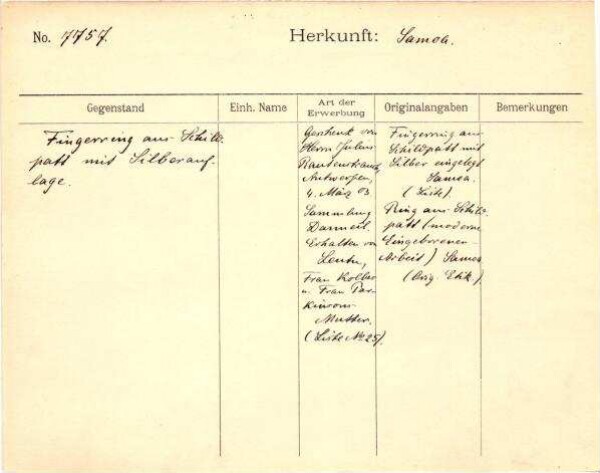 No. 7757.
Herkunft: Samoa.
Gegenstand
Einh. Name
Art der Erwerbung
Originalangaben
Bemerkungen
Fingerring aus Schild-
patt mit Silberauf-
lage.
Geschenk von
Herrn Julius
Rautenstrauch,
Antwerpen,
4. März 03
Sammlung
Danneil.
Erhalten von
Frau Kolbe
u. Frau Par-
kinsons
Mutter.
(Liste No 25).
Fingerring aus
Schildpatt mit
Silber eingelegt
Samoa.
(Liste).
Ring aus Schild-
patt (moderne
Eingeborenen-
Arbeit) Samoa
(Orig. Etik.).